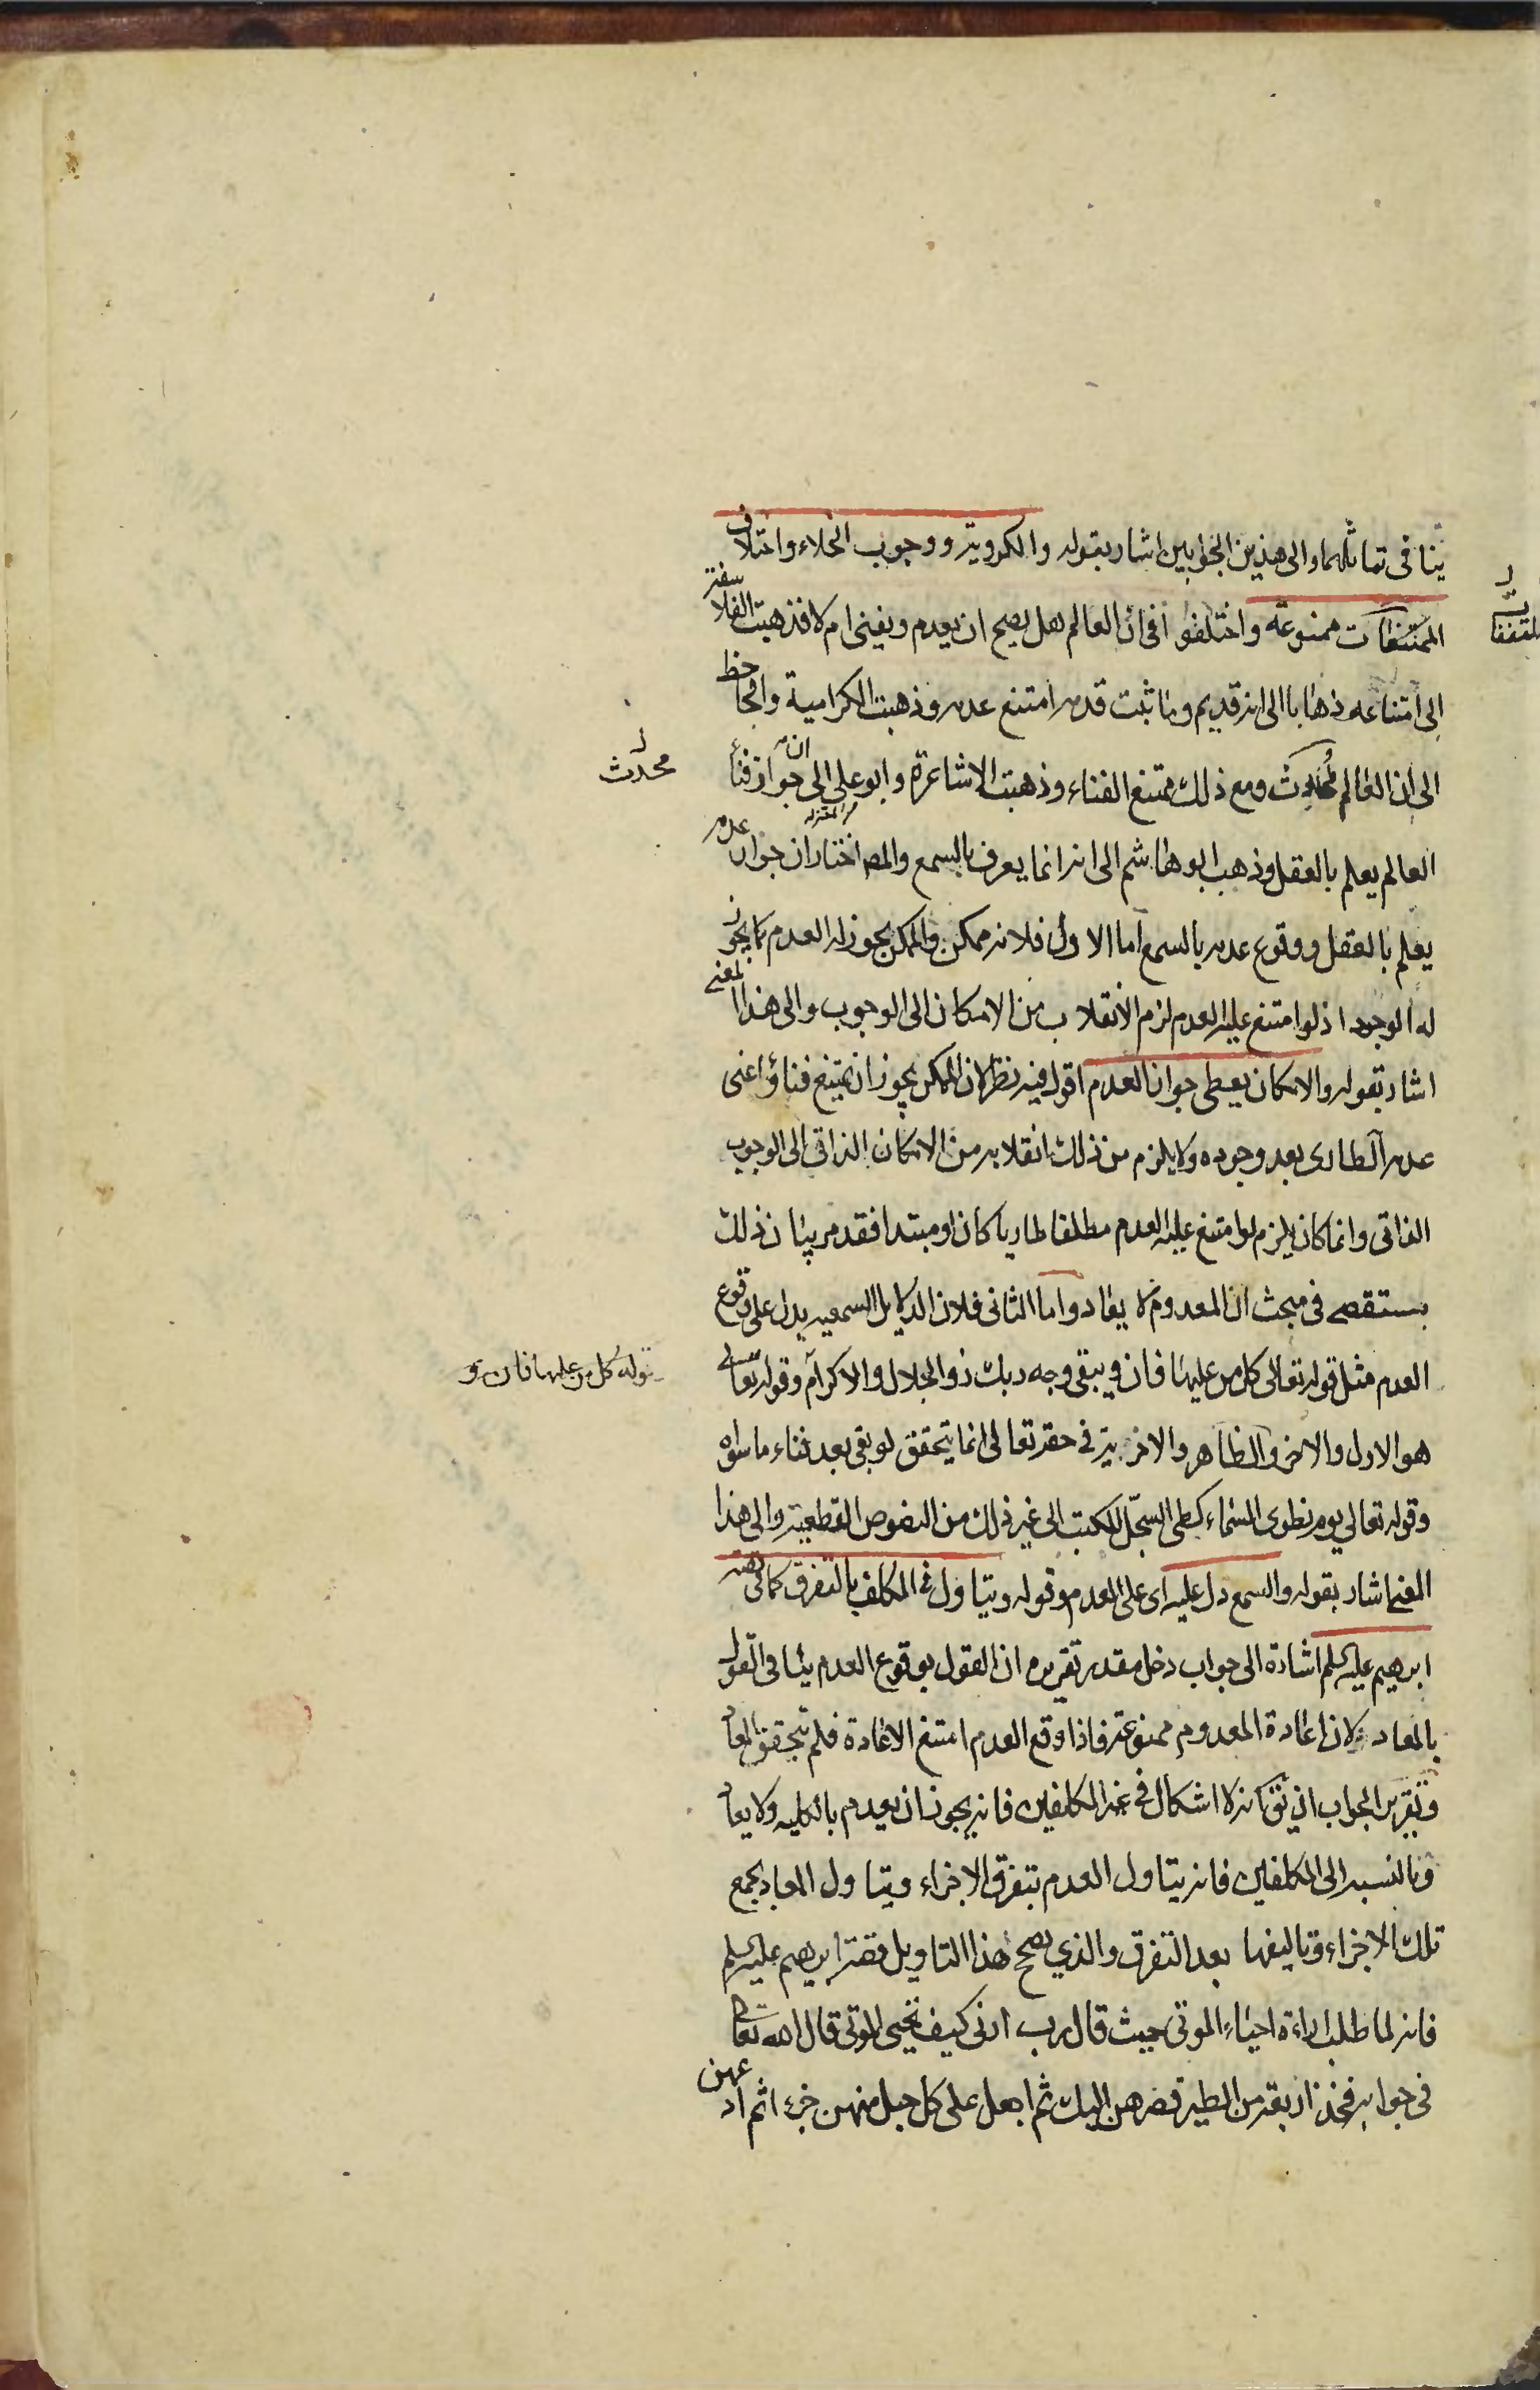 ينافى تماثلهما والى هذين الجوابين اشار بقوله والكروية ووجوب الخلاء واختلاف
المتفقات ممنوعة واختلفوا فى ان العالم هل يصح ان يعدم ويفنى ام لا فذهبت الفلاسفة
الى امتناعه ذهابا الى انه قديم وما ثبت قدمه امتنع عدمه وذهبت الكرامية والجاحظ
الى ان العالم محدث ومع ذلك ممتنع الفناء وذهبت الاشاعرة وابو على من المعتزلة الى ان جواز فناء
العالم يعلم بالعقل وذهب ابو هاشم الى انه انما يعرف بالسمع والمص اختار ان جواز عدمه
يعلم بالعقل ووقوع عدمه بالسمع اما الاول فلانه ممكن والممكن يجوز له العدم كما يجوز
له الوجود اذ لو امتنع عليه العدم لزم الانقلاب من الامكان الى الوجوب والى هذا المعنى
اشار بقوله والامكان يعطى جواز العدم اقول فيه نظر لان الممكن يجوز ان يمتنع فناؤه اعنى
عدمه الطارى بعد وجوده ولا يلزم من ذلك انقلابه من الامكان الذاتى الى الوجوب
الذاتى وانما كان يلزم لو امتنع عليه العدم مطلقا طاريا كان او مبتدا فقد مر بيان ذلك
مستقصى فى مبحث ان المعدوم لا يعاد واما الثانى فلان الدلايل السمعيه يدل على وقوع
العدم مثل قوله تعالى كل من عليها فان ويبقى وجه ربك ذو الجلال والاكرام وقوله تعالى
هو الاول والاخر والظاهر والاخرية فى حقه تعالى انما يتحقق لو بقى بعد فناء ما سواه
وقوله تعالى يوم نطوى السماء كطى السجّل للكتب الى غير ذلك من النصوص القطعية والى هذا
المعنى اشار بقوله والسمع دل عليه اى على العدم وقوله ويتاول فى المكلف بالتفرق كما فى قصة
ابرهيم عليه السلم اشارة الى جواب دخل مقدر تقريره ان القول بوقوع العدم ينافى القول
بالمعاد لان اعادة المعدوم ممنوعة فاذا وقع العدم امتنع الاعادة فلم يتحقق المعاد
وتقرير الجواب ان يقال انه لا اشكال فى غير المكلفين فانه يجوز ان يعدم بالكليه ولا يعاد
وبالنسبه الى المكلفين فانه يتاول العدم بتفرق الاجزاء ويتاول المعاد بجمع
تلك الاجزاء وتاليفها بعد التفرق والذي يصحح هذا التاويل قصة ابرهيم عليه السلم
فانه لما طلب اراءة احياء الموتى حيث قال رب ارنى كيف تحيى الموتى قال الله تعالى
فى جوابه فخذ اربعة من الطير فصرهن اليك ثم اجعل على كل جبل منهن جزءا ثم ادعهن
محدث
قوله كل من عليها فان و